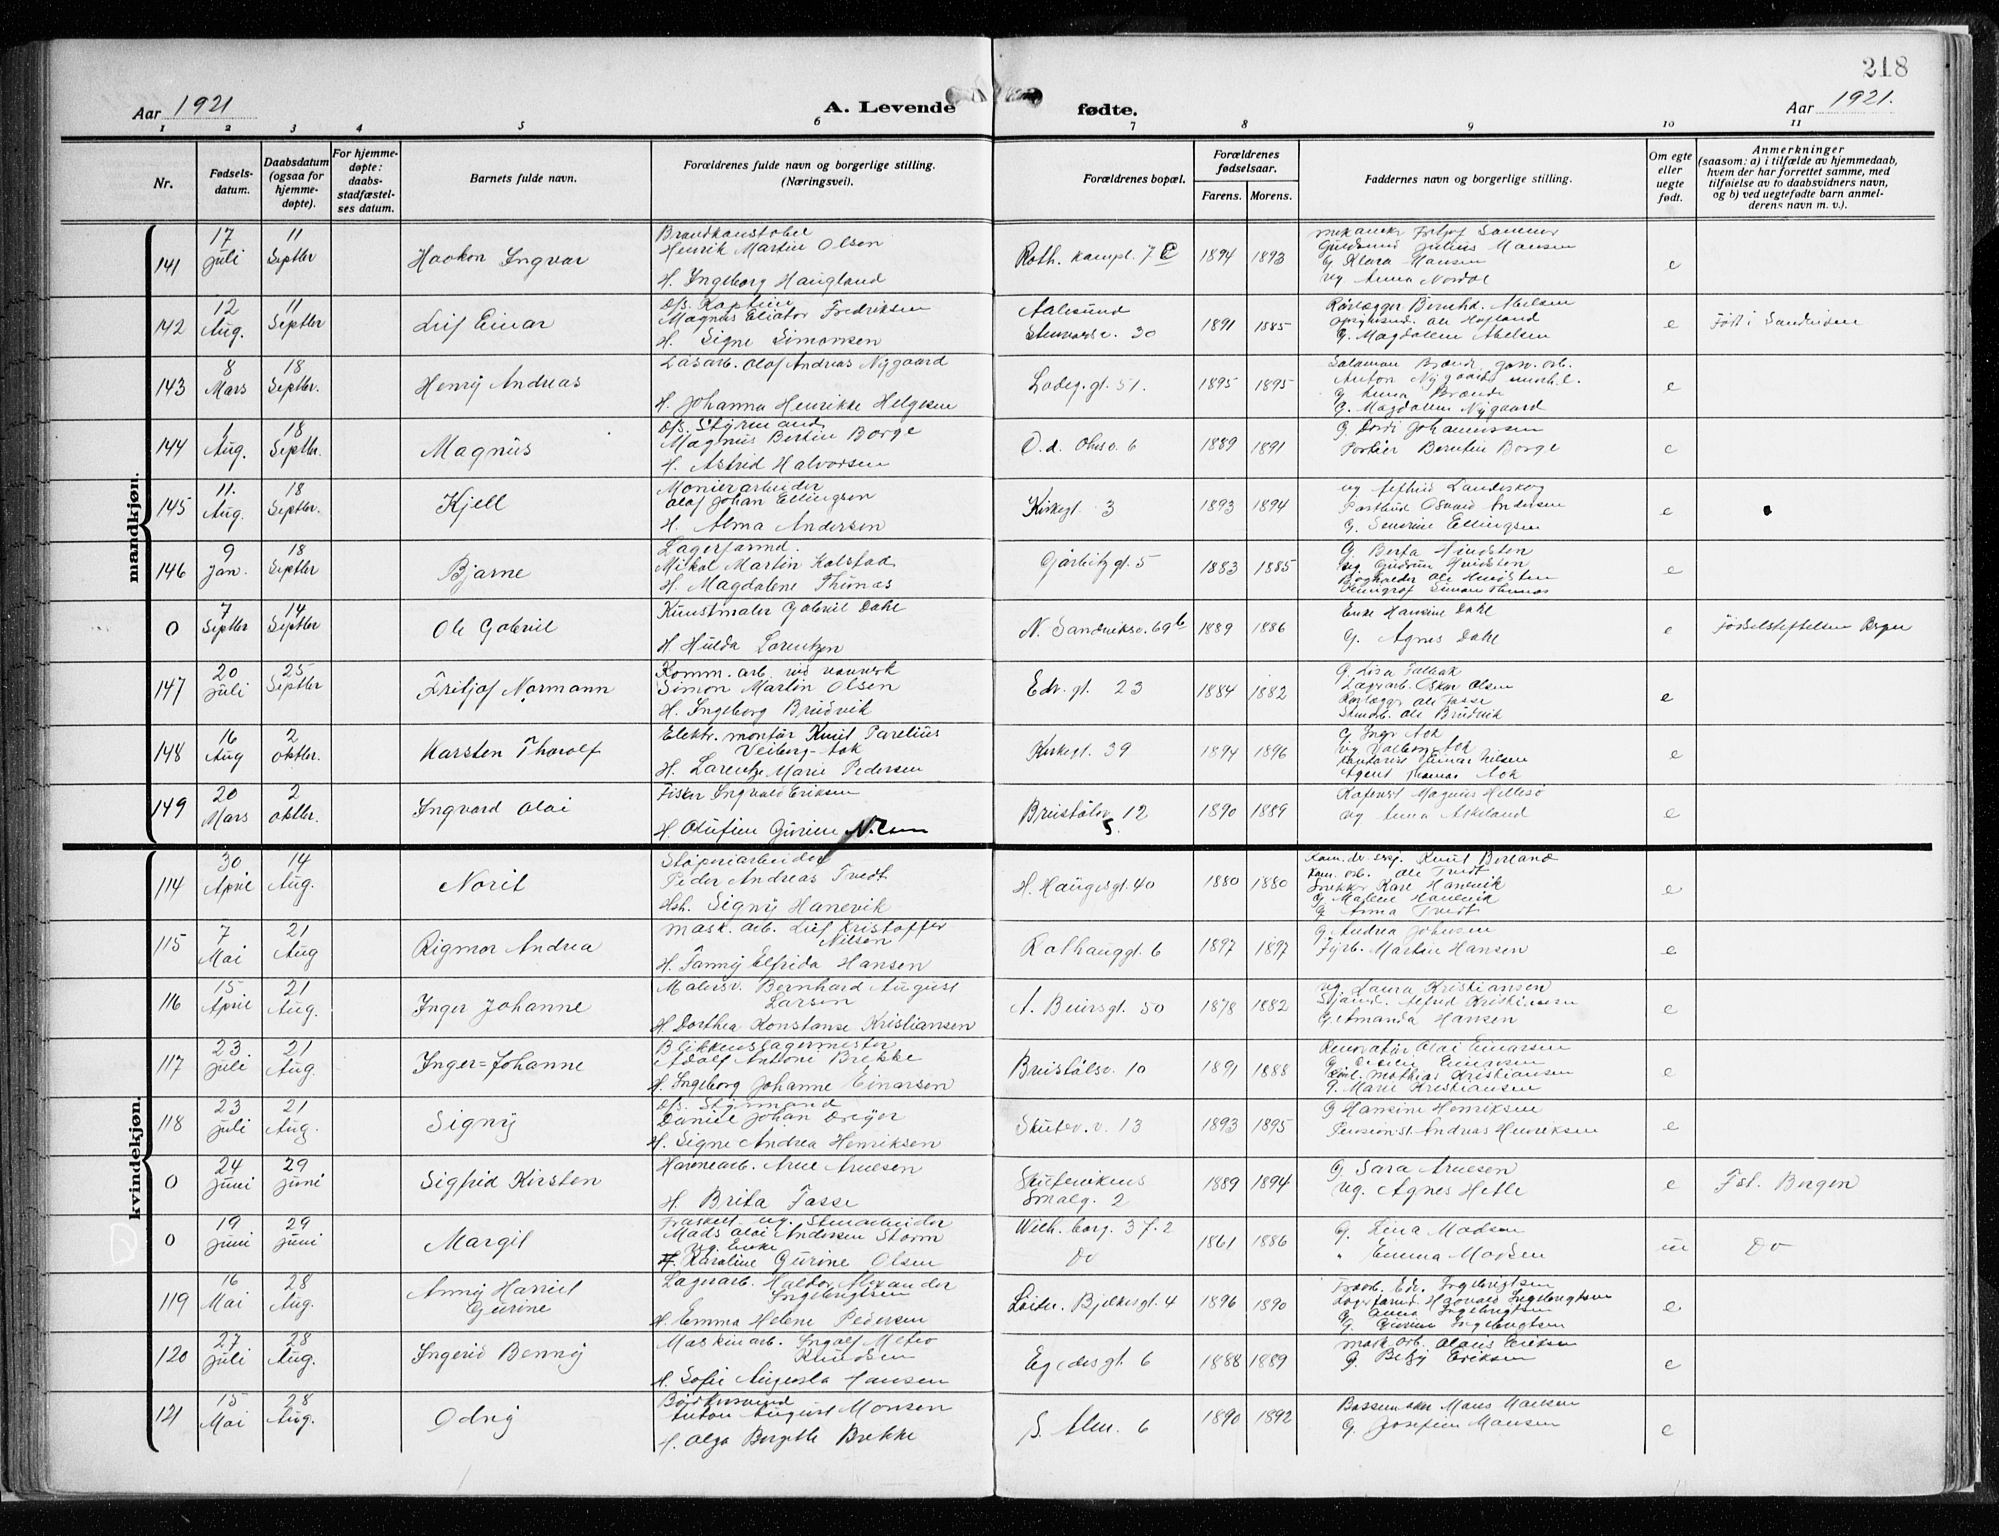 218
Aar 1921
A. Levende fødte.
Aar 1921.
1 2 3 4 5 6 7 8 9 10 11
Nr.
Fødsels-
datum.
Daabsdatum
(ogsaa for
hjemme-
døpte).
For hjemme-
døpte:
daabs-
stadfæstel-
ses datum.
Barnets fulde navn.
Forældrenes fulde navn og borgerlige stilling.
(Næringsvei).
Forældrenes bopæl.
Forældrenes
fødselsaar.
Farens. Morens.
Faddernes navn og borgerlige stilling.
Om egte
eller
uegte
født.
Anmerkninger
(saasom: a) i tilfælde av hjemmedaab,
hvem der har forrettet samme, med
tilføielse av to daabsvidners navn,
og b) ved uegtefødte barn anmel-
derens navn m. v.).
mandkjøn.
141 17 Juli 11 Septbr Haakon Ingvar
Brandkonstabel
Henrik Martin Olsen
H. Ingeborg Haugland
Roth. kampl. 7 C 1894 1893
Julius Hansen
G Klara Hansen
ug Anna Nordal
e
142 12 Aug. 11 Septbr Leif Einar
d/s. Kaptein
Magnus Eliator Fredriksen
H. Signe Simonsen
Aalesund
30 1891 1885
Rørlægger Bernhd. Abelsen
Ole Hofland
G. Magdalene Abelsen
e Født i Sandviken
143 8 Mars 18 Septbr. Henry Andreas
Løsarb. Olaf Andreas Nygaard
H. Johanna Henrikke Helgesen
Ladeg. gt. 51. 1895 1895
Salamon
Anton Nygaard
G Anna
G. Magdalene Nygaard
e
144 1 Aug. 18 Septbr. Magnus
d/s. Styrmand
Magnus Bertin Borge
H. Astrid Halvorsen
6 1889 1891
G Dordi Johannessen
Portier Berntin Borge
e
145 11. Aug. 18 Septbr. Kjell
Monierarbeider
Olaf Johan Ellingsen
H. Alma Andersen
Kirkegt. 3 1893 1894
ug
Postbud Osvald Andersen
G. Severine Ellingsen
e
146 9 Jan. 18 Septbr Bjarne
Lagerformd.
Mikal Martin Kolstad
H. Magdalene Thunæs
Gjørbitzgt. 5 1883 1885
G. Berta Hindsten
ug. Gudrun Hindsten
Bogholder Ole Hindsten
Simon Thunæs
e
0 7 Septbr 14 Septbr Ole Gabriel
Kunstmaler Gabriel Dahl
H Hulda Lorentzen
N. Sandviksv. 69 b 1889 1886
Enke Hansine Dahl
G. Agnes Dahl
e Fødselsstiftelsen Bergen
147 20 Juli 25 Septbr Fritjof Normann
Komm. arb. ved vannverk
Simon Martin Olsen
H. Ingeborg Brudvik
Edv. gt. 23 1884 1882
G Lisa
Lagerarb. Oskar Olsen
Rørlægger Ole Fosse
Ole Brudvik
e
148 16 Aug 2 Oktbr. Karsten Thorolf
Elektr. montør Knut Parelius
Veiberg-Aok
H. Lorentze Marie Pedersen
Kirkegt. 39 1894 1896
G. Inga Aok
ug Valborg Aok
Einar Nilsen
Agent Thomas Aok
e
149 20 Mars 2 Oktbr. Ingvard Olai
Fisker Ingvald Eriksen
H. Olufine Gurine Nilsen
12 1890 1889
Magnus Hellesø
ug Anna Askeland
e
kvindekjøn.
114 30 April 14 Aug. Norit
Støperiarbeider
Peder Andreas Tvedt
Hsh. Signy Hanevik
H. Haugesgt. 40 1880 1880
Knut Berland
Kom. arb. Ole Tvedt
Snekker Karl Hanevik
G Malene Hanevik
G Anna Tvedt
e
115 7 Mai 21 Aug Rigmor Andrea
Mask. arb. Lief Kristoffer
Nilsen
H. Fanny Elfrida Hansen
Kalhauggt. 6 1897 1897
G. Andrea Johnsen
Fyrb. Martin Hansen
e
116 15 April 21 Aug. Inger Johanne
Malersv. Bernhard August
Larsen
H. Dorthea Konstanse Kristiansen
A. Beiersgt. 50 1878 1882
ug Laura Kristiansen
Sjømd. Alfred Kristiansen
G. Amanda Hansen
e
117 23 Juli 21 Aug. Inger=Johanne
Blikkenslagermester
Adolf Antoni Brekke
H. Ingeborg Johanne Einarsen
10 1891 1888
Renovatør Olai Einarsen
G. Einarsen
Mathias Kristiansen
G. Marie Kristiansen
e
118 23 Juli 21 Aug. Signy
d/s. Styrmand
Daniel Johan Dreyer
H. Signe Andrea Henriksen
Skutev. v. 13 1893 1895
G Hansine Henriksen
Pensionst. Andreas Henriksen
e
0 24 Juni 29 Juni Sigfrid Kirsten
Havnearb. Arne Arnesen
H. Brita Fosse
Skutevikens
Smalg. 2 1889 1894
G Sara Arnesen
ug. Agnes Hetle
e Fst. Bergen
0 19 Juni 29 Juni Margit
Fraskilt ug. Stenarbeider
Mads Olai Andersen Storm
ug. Enke
Karoline Gurine Olsen
Wilh. borg. 3 f. 2
Do 1861 1886
G. Lina Madsen
" Emma Madsen
u Do
119 16 Mai 28 Aug. Anny Harriet
Gurine
Lagerarb. Haldor Alexander
Ingebrigtsen
H. Emma Helene Pedersen
Løitn. Bjelkesgt. 4 1896 1890
Edv. Ingebrigtsen
Lagerformd. Harald Ingebrigtsen
G. Anna Ingebrigtsen
G. Gurine Ingebrigtsen
e
120 27 Juli 28 Aug. Ingerid Benny
Maskinarb. Ingolf Meteo
Knudsen
H. Sofie Augusta Hansen
Egedesgt. 6 1888 1889
Mask. arb. Olaus Eriksen
G. Betzy Eriksen
e
121 15 Mai 28 Aug. Odny
Anton August Monsen
H. Olga Bergitte Brekke
S. Alm. 6 1890 1892
Hans Hansen
G. Josefine Hansen
e